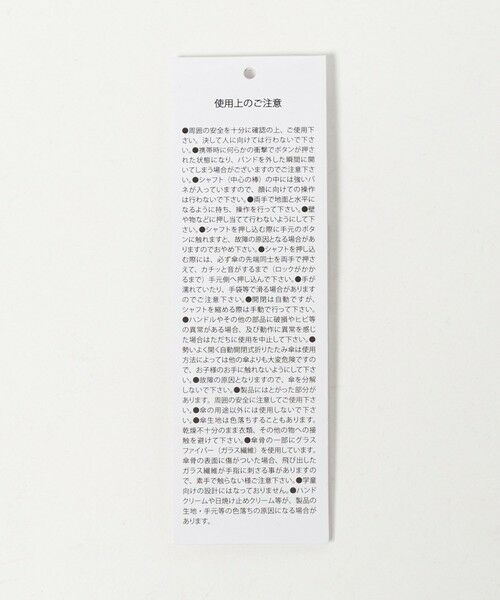 使用上のご注意
●周囲の安全を十分に確認の上、ご使用下
さい。決して人に向けては行わないで下さ
い。●携帯時に何らかの衝撃でボタンが押さ
れた状態になり、バンドを外した瞬間に開
いてしまう場合がございますのでご注意下さ
い。●シャフト（中心の棒）の中には強いバ
ネが入っていますので、顔に向けての操作
は行わないで下さい。●両手で地面と水平に
なるように持ち、操作を行って下さい。●壁
や物などに押し当てて行わないようにして下
さい。●シャフトを押し込む際に手元のボタ
ンに触れますと、故障の原因となる場合があ
りますのでおやめ下さい。●シャフトを押し込
む際には、必ず傘の先端同士を両手で押さ
えて、カチッと音がするまで（ロックがかか
るまで）手元側へ押し込んで下さい。●手が
濡れていたり、手袋等で滑る場合があります
のでご注意下さい。●開閉は自動ですが、
シャフトを縮める際は手動で行って下さい。
●ハンドルやその他の部品に破損やヒビ等
の異常がある場合、及び動作に異常を感じ
た場合はただちに使用を中止して下さい。●
勢いよく開く自動開閉式折りたたみ傘は使用
方法によっては他の傘よりも大変危険ですの
で、お子様のお手に触れないようにして下さ
い。●故障の原因となりますので、傘を分解
しないで下さい。●製品にはとがった部分が
あります。周囲の安全に注意してご使用下さ
い。●傘の用途以外には使用しないで下さ
い。●傘生地は色落ちすることもあります。
乾燥不十分のまま衣類、その他の物への接
触を避けて下さい。●傘骨の一部にグラス
ファイバー（ガラス繊維）を使用しています。
傘骨の表面に傷がついた場合、飛び出した
ガラス繊維が手指に刺さる事がありますの
で、素手で触らない様ご注意下さい。●学童
向けの設計にはなっておりません。●ハンド
クリームや日焼け止めクリーム等が、製品の
生地・手元等の色落ちの原因になる場合が
あります。